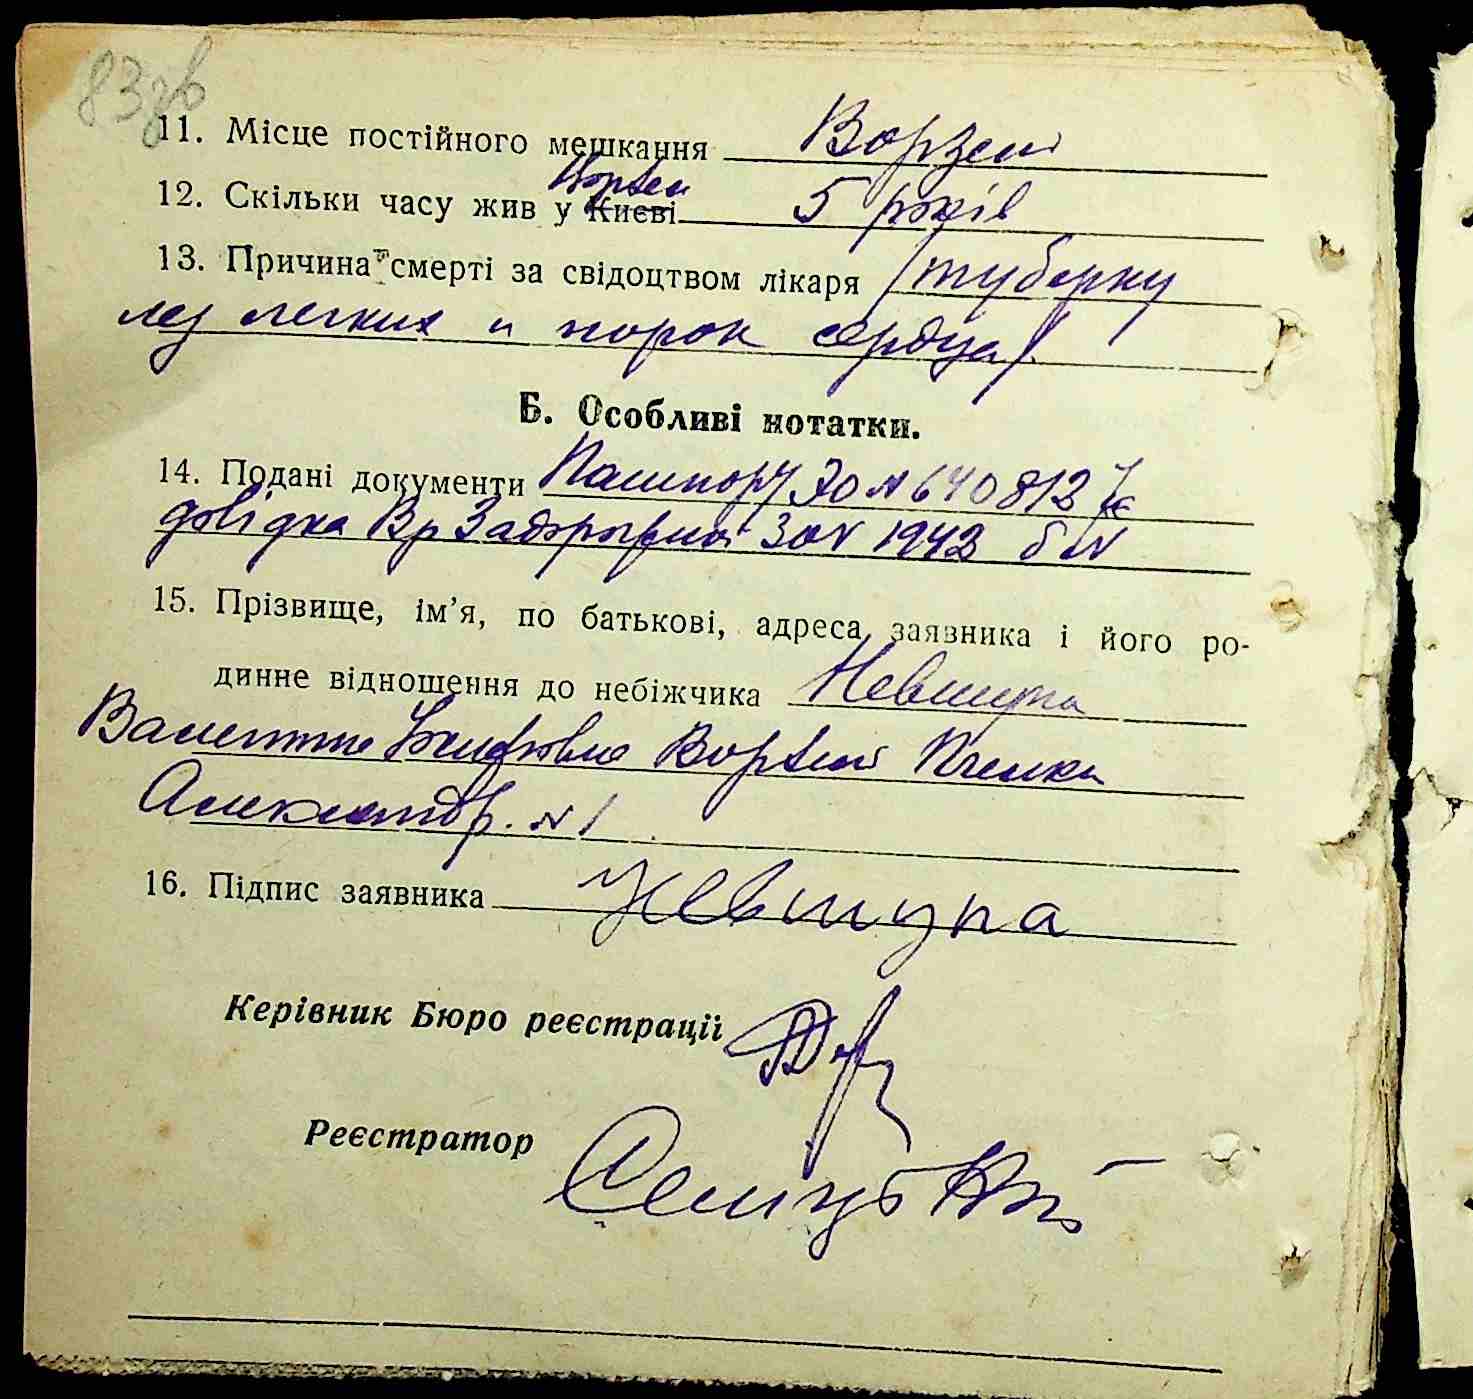 83зв
11. Місце постійного мешкання Ворзель
Ворзель
12. Скільки часу жив у Києві 5 років
13. Причина смерті за свідоцтвом лікаря (туберку
лез легких и порок сердца).
Б. Особливі нотатки.
14. Подані документи Пашпорт ЭО № 640812
довідка Вр 1942
15. Прізвище, ім’я, по батькові, адреса заявника і його ро-
динне відношення до небіжчика Невшупа
Валентина Ворзель
Александр. № 1
16. Підпис заявника Невшупа
Керівник Бюро реєстрації
Реєстратор